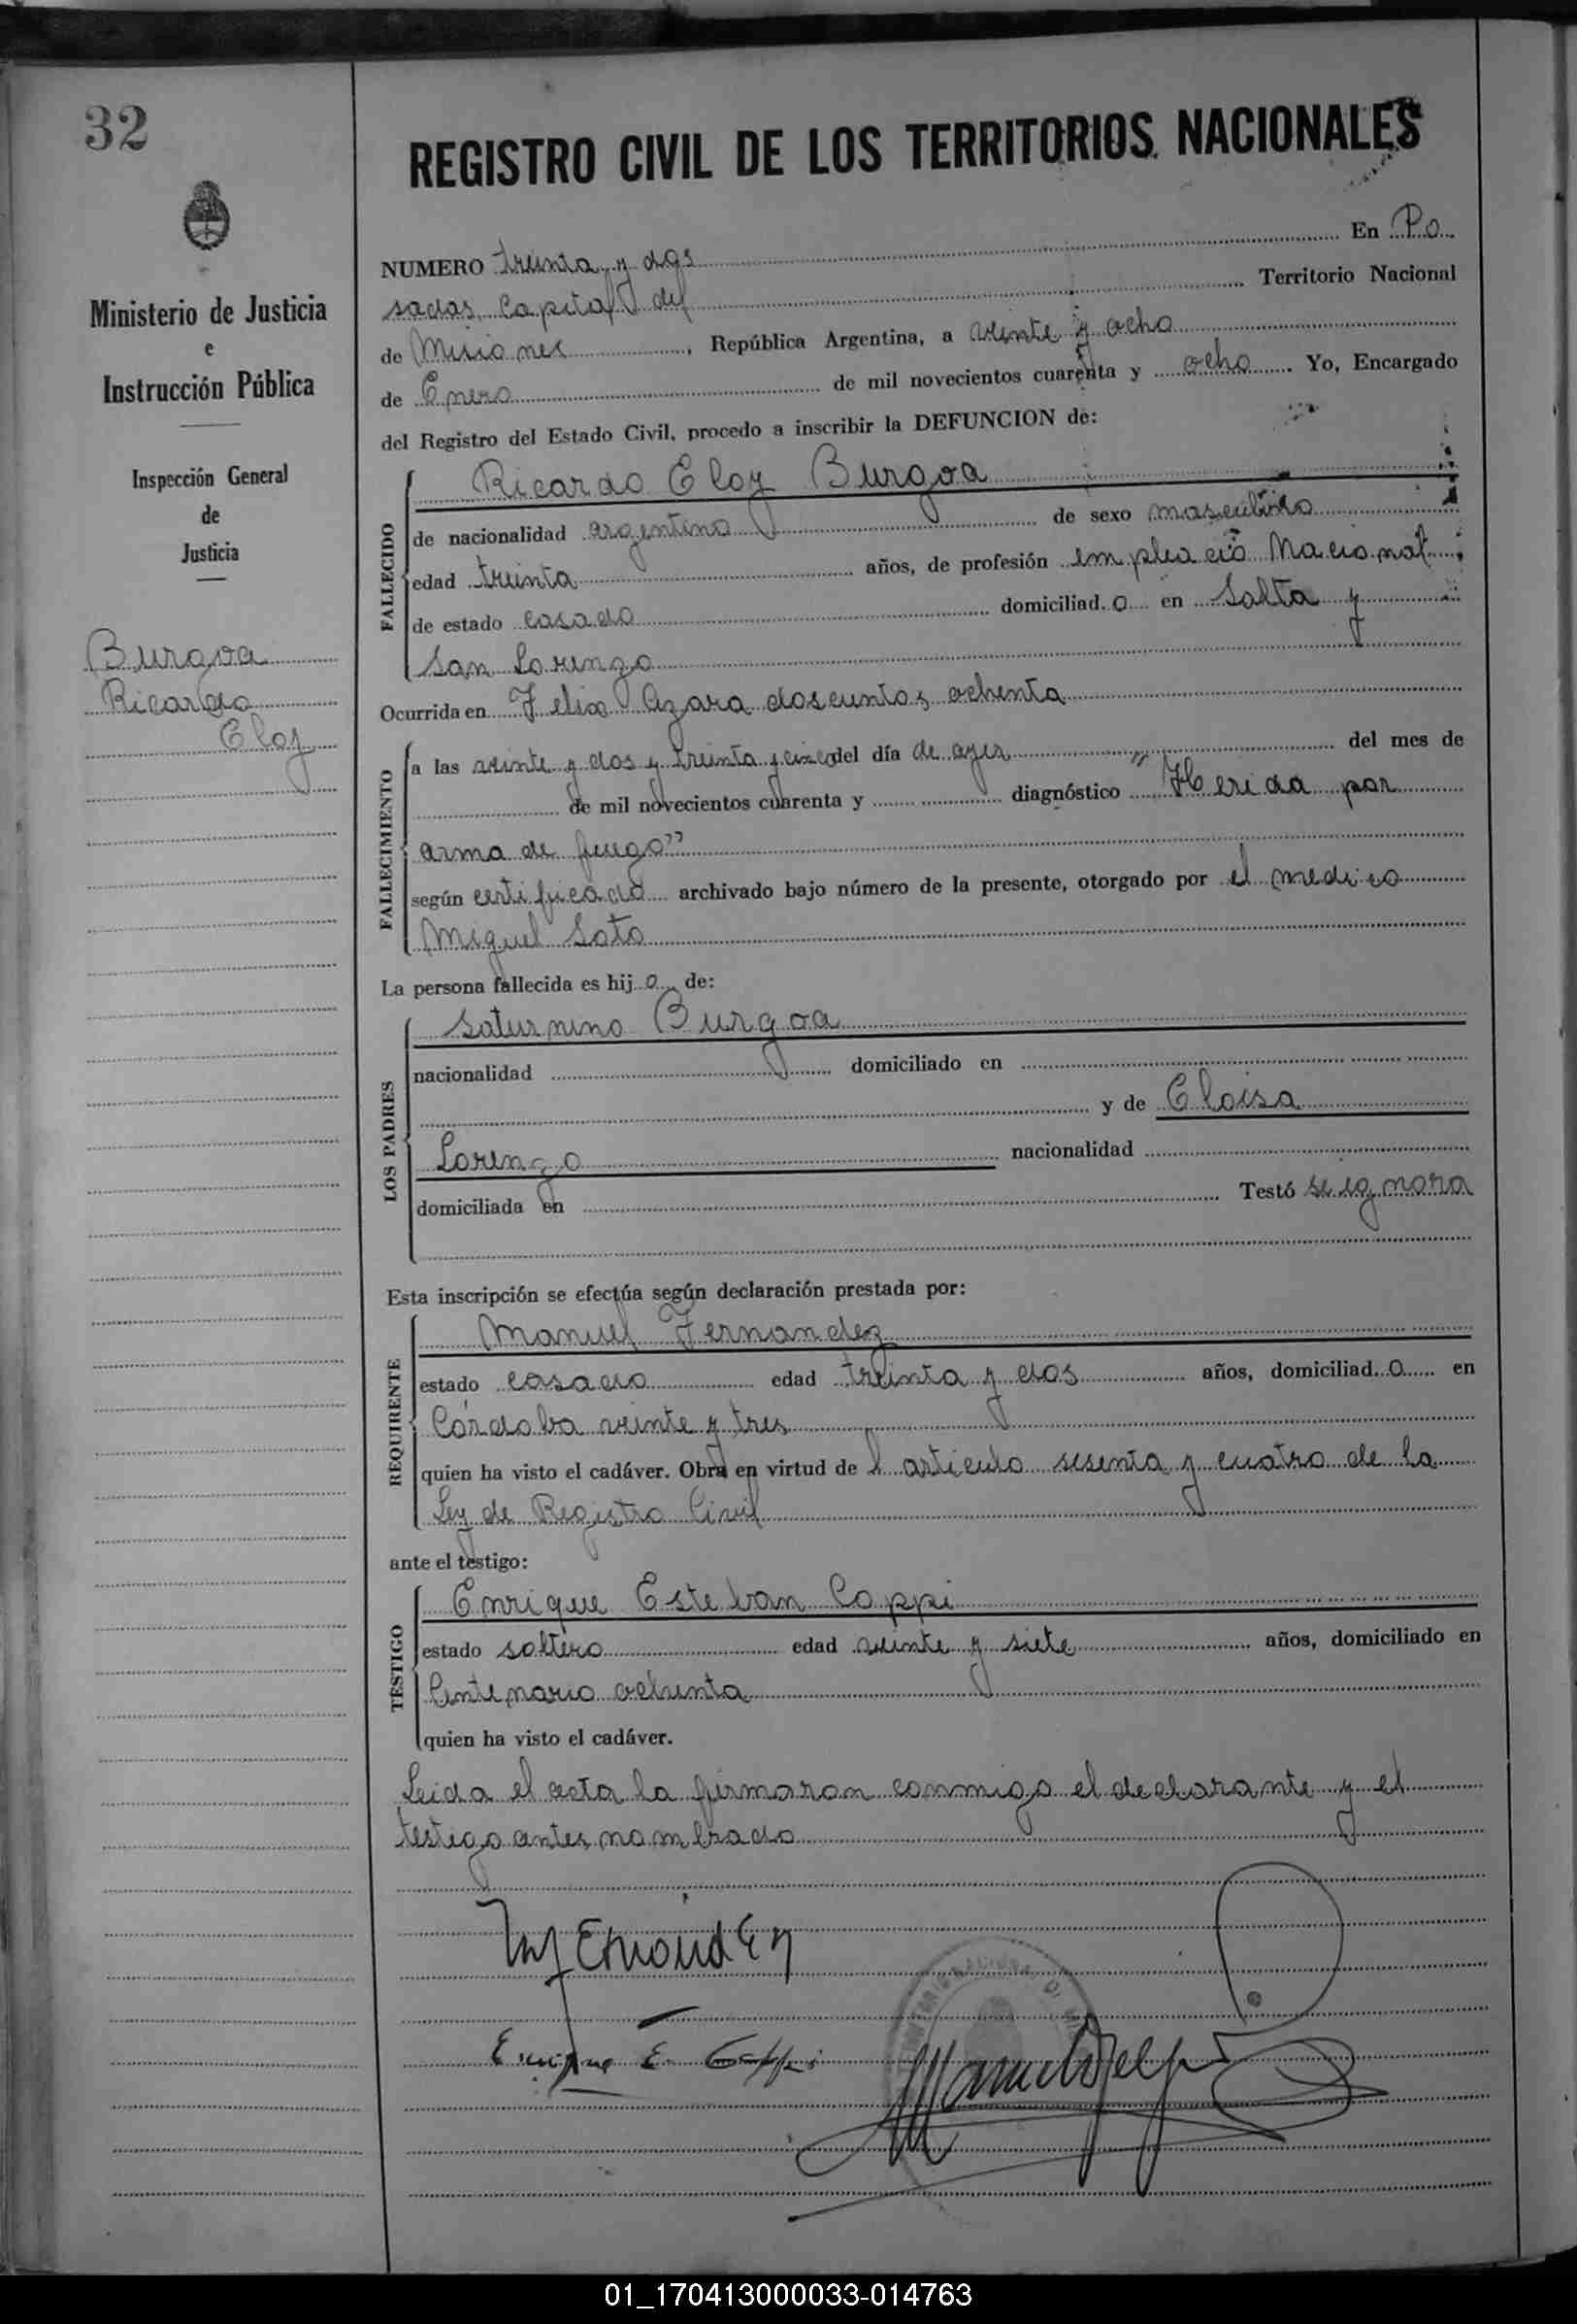 32
Ministerio de Justicia
e
Instrucción Pública
Inspección General
de
Justicia
Burgoa
Ricardo
Eloy
REGISTRO CIVIL DE LOS TERRITORIOS NACIONALES
NUMERO treinta y dos En Po
sadas, Capital del Territorio Nacional
de Misiones, República Argentina, a veinte y ocho
de Enero de mil novecientos cuarenta y ocho. Yo, Encargado
del Registro del Estado Civil, procedo a inscribir la DEFUNCION de:
FALLECIDO
Ricardo Eloy Burgoa
de nacionalidad argentino de sexo masculino
edad treinta años, de profesión empleado Nacional
de estado casado domiciliad o en Salta y
San Lorenzo
Ocurrida en Felix Azara doscientos ochenta
FALLECIMIENTO
a las veinte y dos y treinta y cinco del día de ayer del mes de
de mil novecientos cuarenta y diagnóstico "Herida por
arma de fuego"
según certificado archivado bajo número de la presente, otorgado por el medico
Miguel Soto
La persona fallecida es hij o de:
LOS PADRES
Saturnino Burgoa
nacionalidad domiciliado en
y de Eloisa
Lorenzo nacionalidad
domiciliada en Testó se ignora
Esta inscripción se efectúa según declaración prestada por:
REQUIRENTE
Manuel Fernandez
estado casado edad treinta y dos años, domiciliad o en
Córdoba veinte y tres
quien ha visto el cadáver. Obra en virtud de l articulo sesenta y cuatro de la
Ley de Registro Civil
ante el testigo:
TESTIGO
Enrique Esteban Coppi
estado soltero edad veinte y siete años, domiciliado en
Centenario ochenta
quien ha visto el cadáver.
Leida el acta la firmaron conmigo el declarante y el
testigo antes nombrado
Enrique E. Coppi
01_170413000033-014763